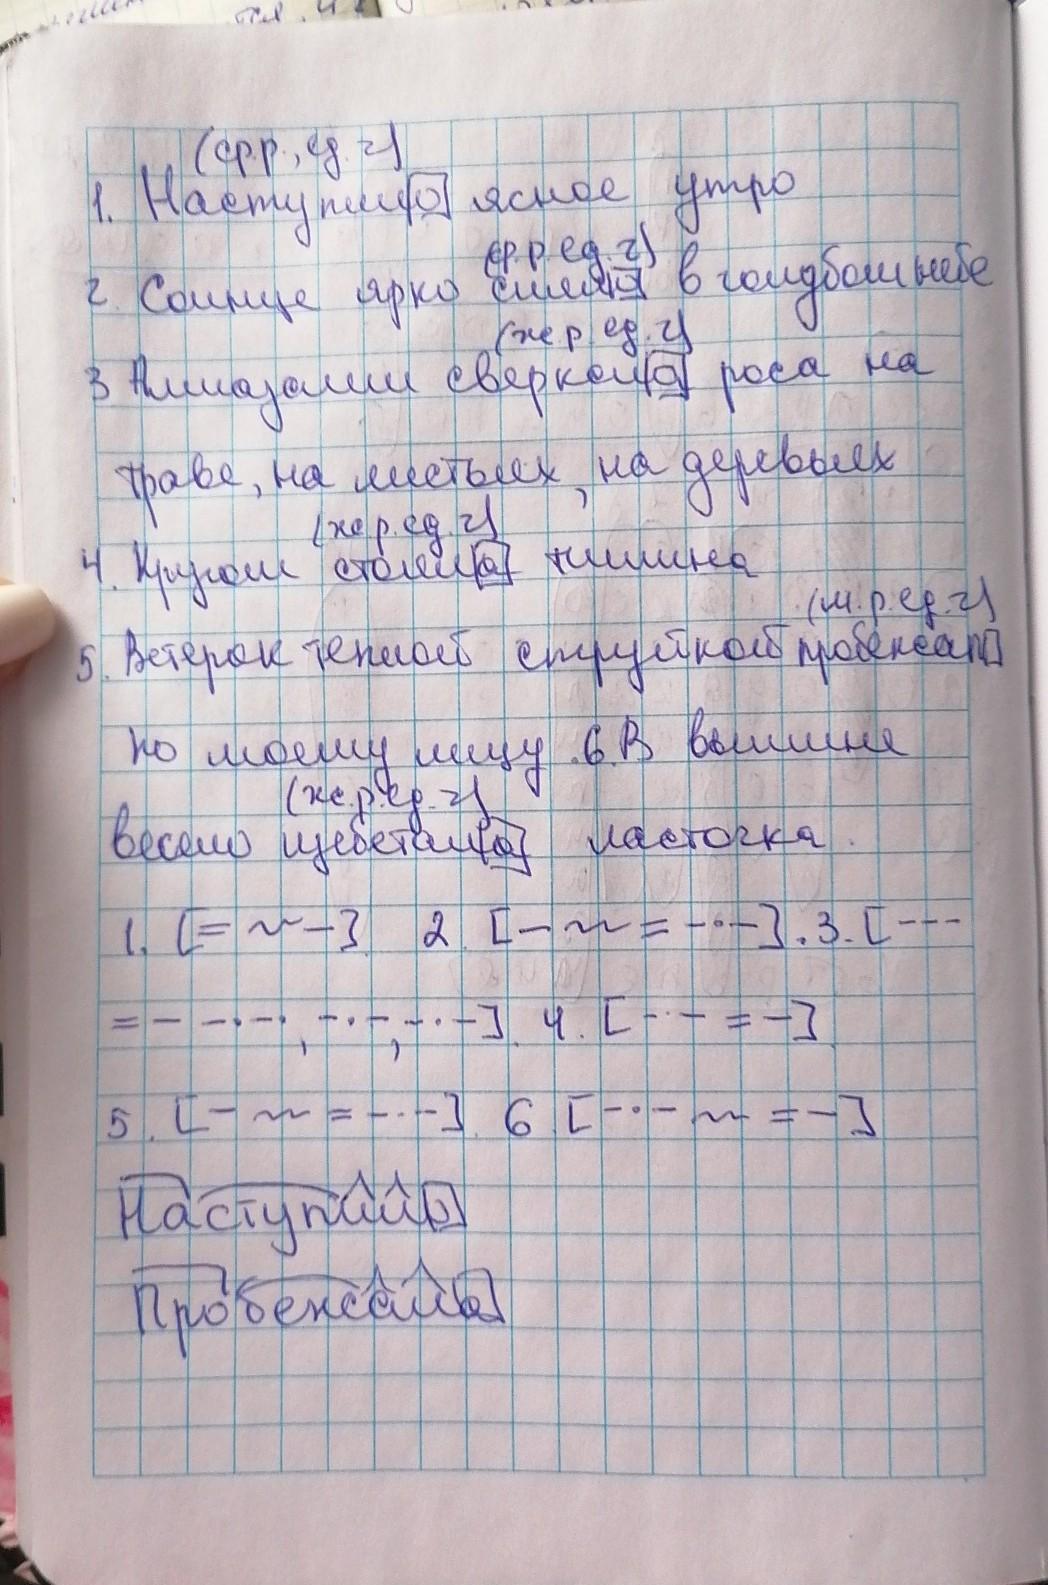 (ср.р., ед.ч)
1. Наступил о ясное утро
(ср.р. ед.ч)
2. Солнце ярко сияло в голубом небе
(же.р. ед.ч)
3 Алмазами сверкала роса на
траве, на листьях, на деревьях
(же.р. ед.ч)
4. Кругом стояла тишина
(м.р. ед.ч)
5. Ветерок теплой струйкой пробежал
по моему лицу. 6. В вышине
(же.р. ед.ч)
весело щебетала ласточка.
1. [= ~ –]. 2. [– ~ = –·–·–]. 3. [– – –
= – –·–·, –·–, –·–]. 4. [–·– = –].
5. [– ~ = –·–]. 6. [–·– ~ = –]
Наступило
Пробежала